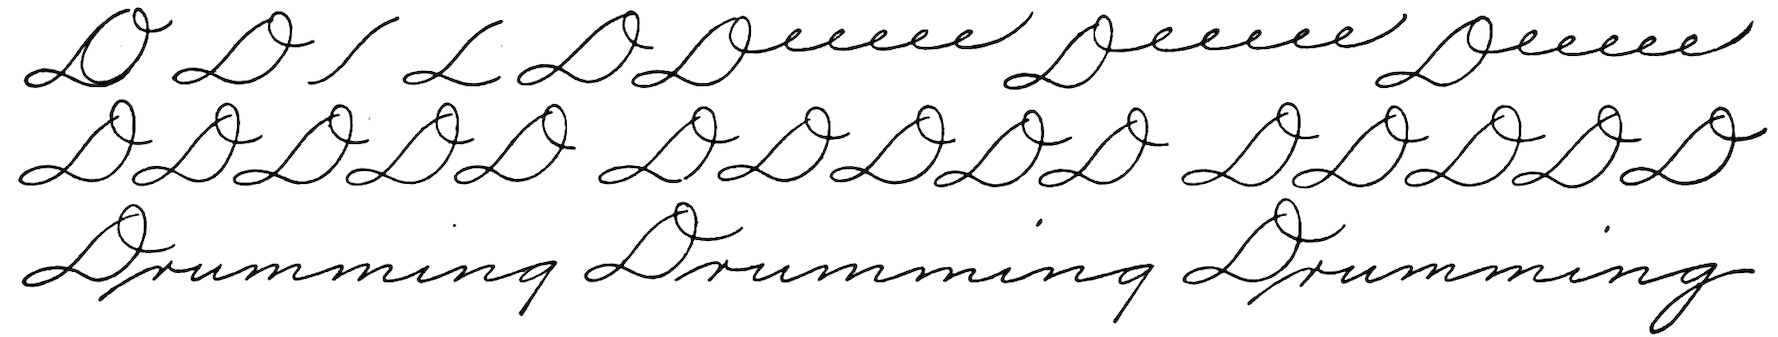 D D D Deeeee Deeeee Deeeee
D D D D D D D D D D D D D D D
Drumming Drumming Drumming